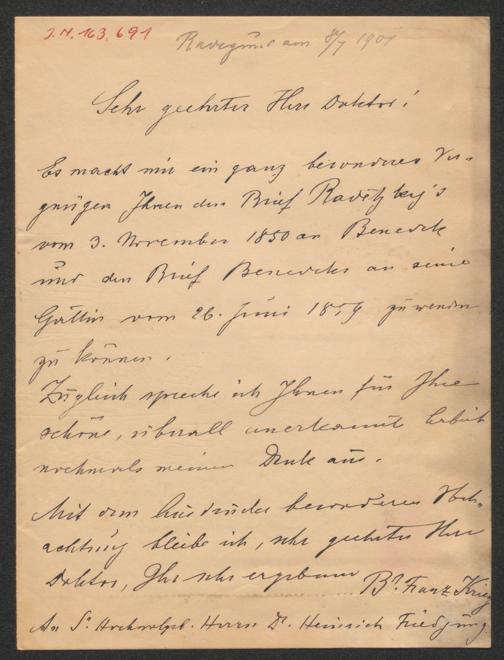 J.N. 163.691
Radegund am 8/7 1901
Sehr geehrter Herr Doktor!
Es macht mir ein ganz besonderes Ver-
gnügen Ihnen den Brief Radetzky's
vom 3. November 1850 an Benedek
und den Brief Benedeks an seine
Gattin vom 26. Juni 1859 zuwenden
zu können.
Zugleich spreche ich Ihnen für Ihre
schöne, überall anerkannte Arbeit
nochmals meinen Dank aus.
Mit dem Ausdrucke besonderer Hoch-
achtung bleibe ich, sehr geehrter Herr
Doktor, Ihr sehr ergebener Br. Franz Krieg
An Sr. Hochwolgeb. Herrn Dr. Heinrich Friedjung